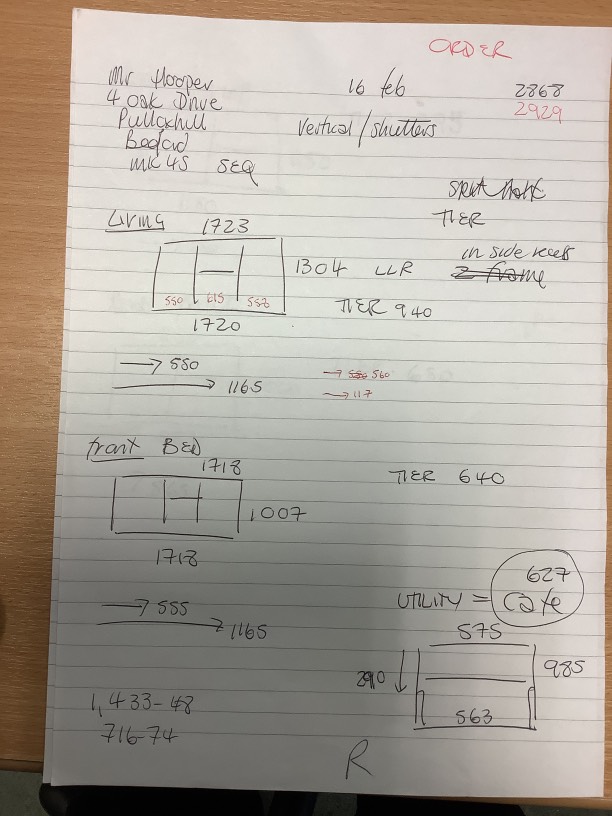 ORDER
Mr Hooper 16 feb 2868
4 oak Drive 2929
Pulloxhill Vertical/shutters
Bedford
MK45 5EQ
TIER
Living 1723
inside recess
1304 LLR Z frame
550 615 558
TIER 940
1720
→ 550
→ 1165
→ 550 560
→ 117
front BED
1718 TIER 640
1007
1718
627
UTILITY = Cafe
→ 555
→ 1165
575
290 985
563
1,433-48
716-74
R